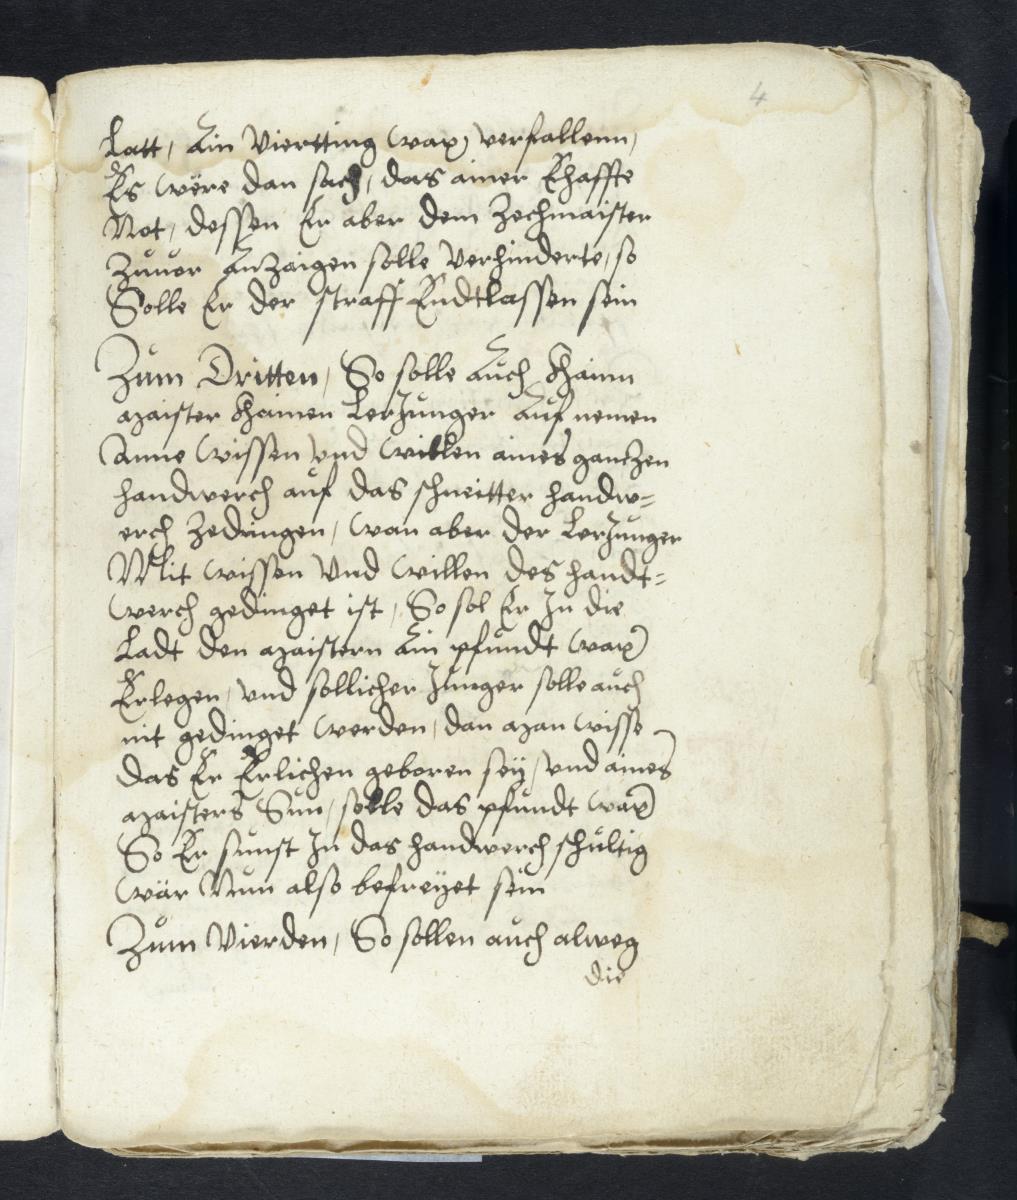 4
Latt, Ain Viertting wax, verfallenn,
Es wëre dan sach, das ainer Ehaffte
Not, dessen Er aber dem Zechmaister
Zuuor Anzaigen solle verhinderte, so
Solle Er der straff Endtlassen sein
Zum Dritten, So solle Auch Khainn
maister Khainen LerJunger Auf nemen
Anne wissen vnd willen aines ganczen
handwerch auf das schneitter handw=
erch Zedingen, wan aber der LerJunger
Mit wissen Vnd willen des handt=
werch gedinget ist, So sol Er Jn die
Ladt den maistern Ain pfundt wax
Erlegen, vnd sollicher Junger solle auch
nit gedinget werden, dan man wisse
das Er Erlichen geboren seÿ, vnd aines
maisters Sun, solle das pfundt wax
So Er sunst Jn das handwerch schultig
wär Nun also befreÿet sein
Zum Vierden, So sollen auch alweg
die